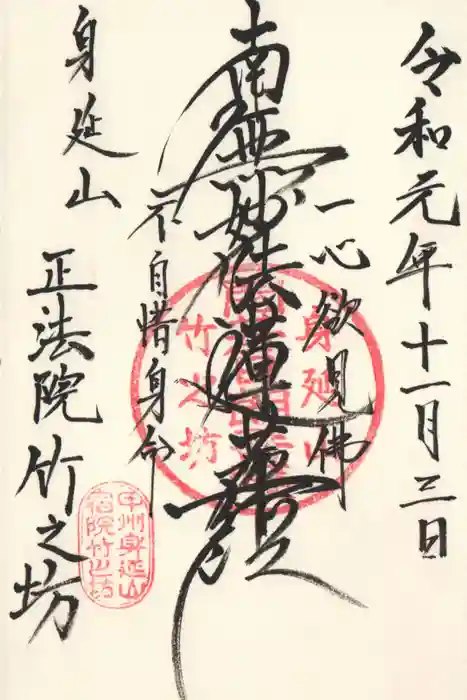 令和元年十一月三日
一心欲見佛
南無妙法蓮華経
不自惜身命
身延山
正法院竹之坊
身延山
竹之坊
甲州身延山
宿院竹之坊